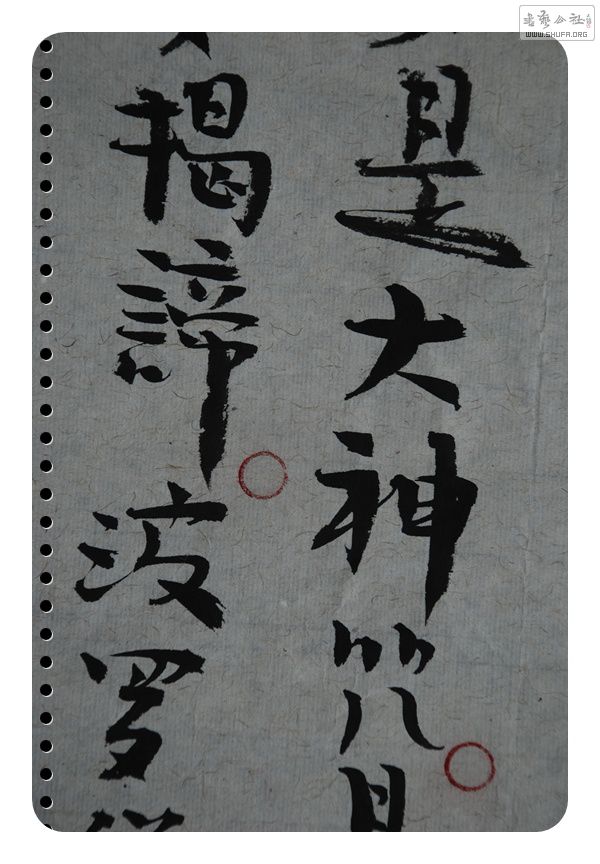 是大神咒
揭諦波罗
書藝公社
WWW.SHUFA.ORG